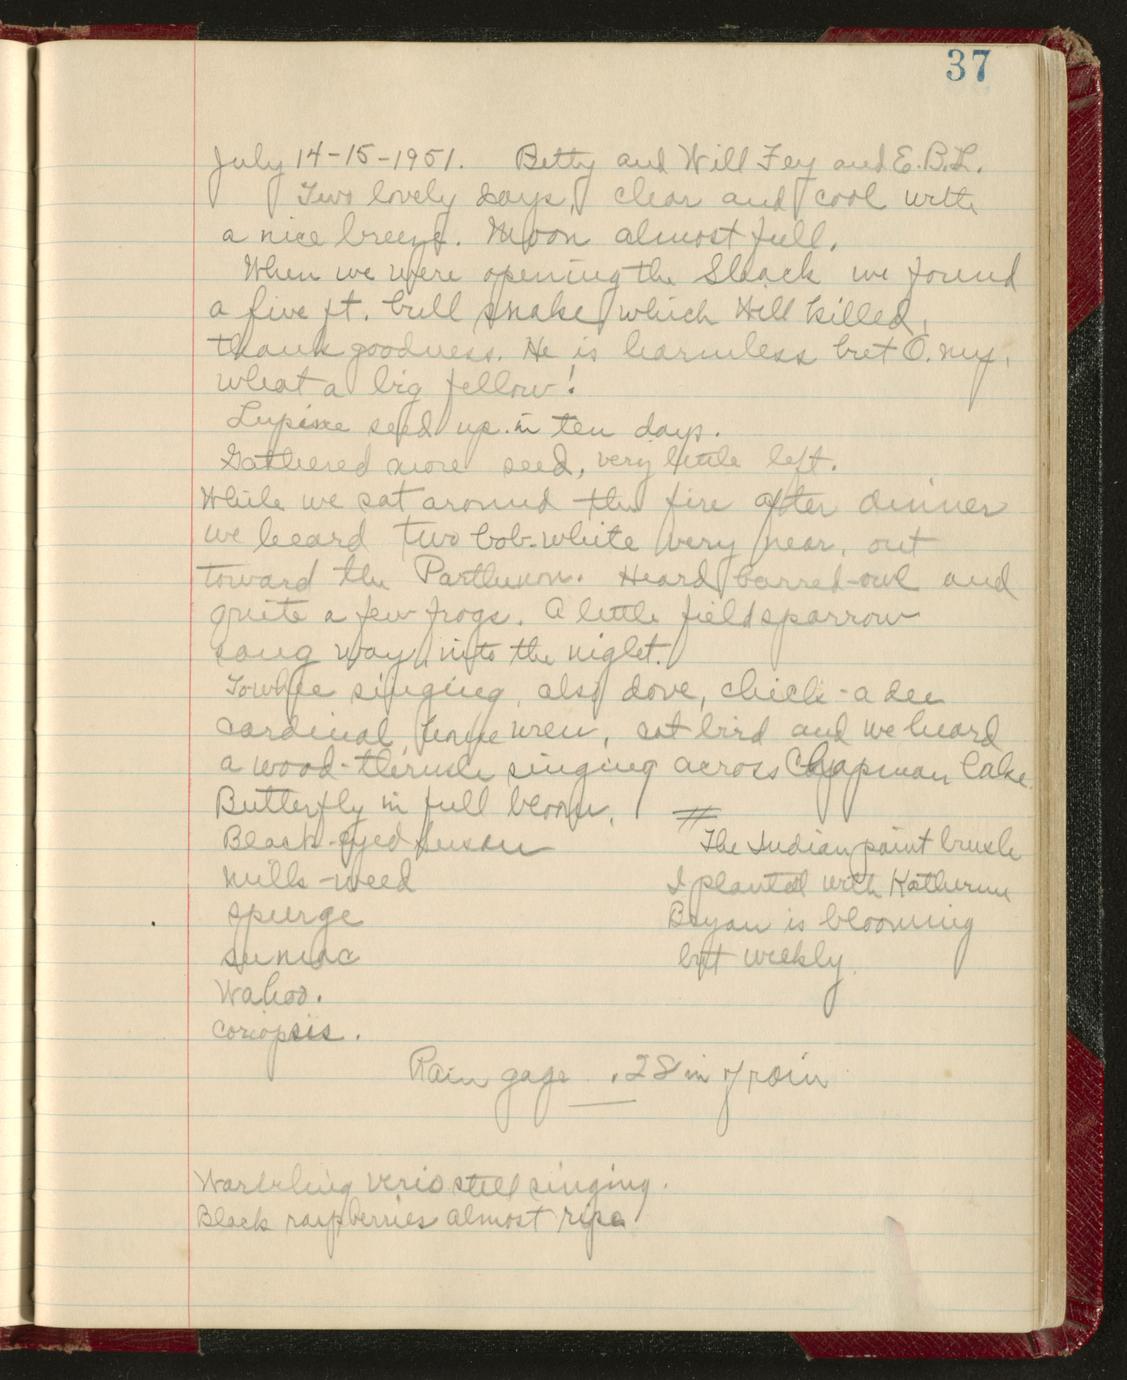 37
July 14-15-1951. Betty and Will Fey and E.B.L.
Two lovely days, clear and cool with
a nice breeze. Moon almost full.
When we were opening the Shack we found
a five ft. bull snake which Will killed,
thank goodness. He is harmless but O. my,
what a big fellow!
Lupine seed up in ten days.
Gathered more seed, very little left.
While we sat around the fire after dinner
we heard two bob-white very near, out
toward the Parthenon. Heard barred-owl and
quite a few frogs. A little field sparrow
sang way into the night.
Towhee singing, also dove, chick-a dee
cardinal, house wren, cat bird and we heard
a wood-thrush singing across Chapman Lake.
Butterfly in full bloom.
Black-eyed Susan
milk-weed
spurge
sumac
Wahoo.
coriopsis.
#
The Indian paint brush
I planted with Katherine
Bryan is blooming
but weekly.
Rain gage .28 in of rain
Warbling verio still singing.
Black raspberries almost ripe